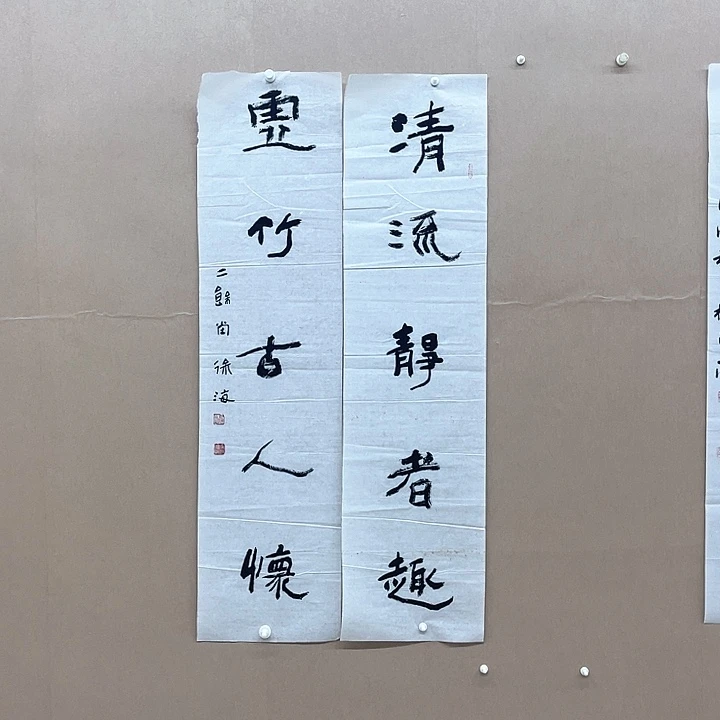 清流靜者趣
虛竹古人懷
徐海